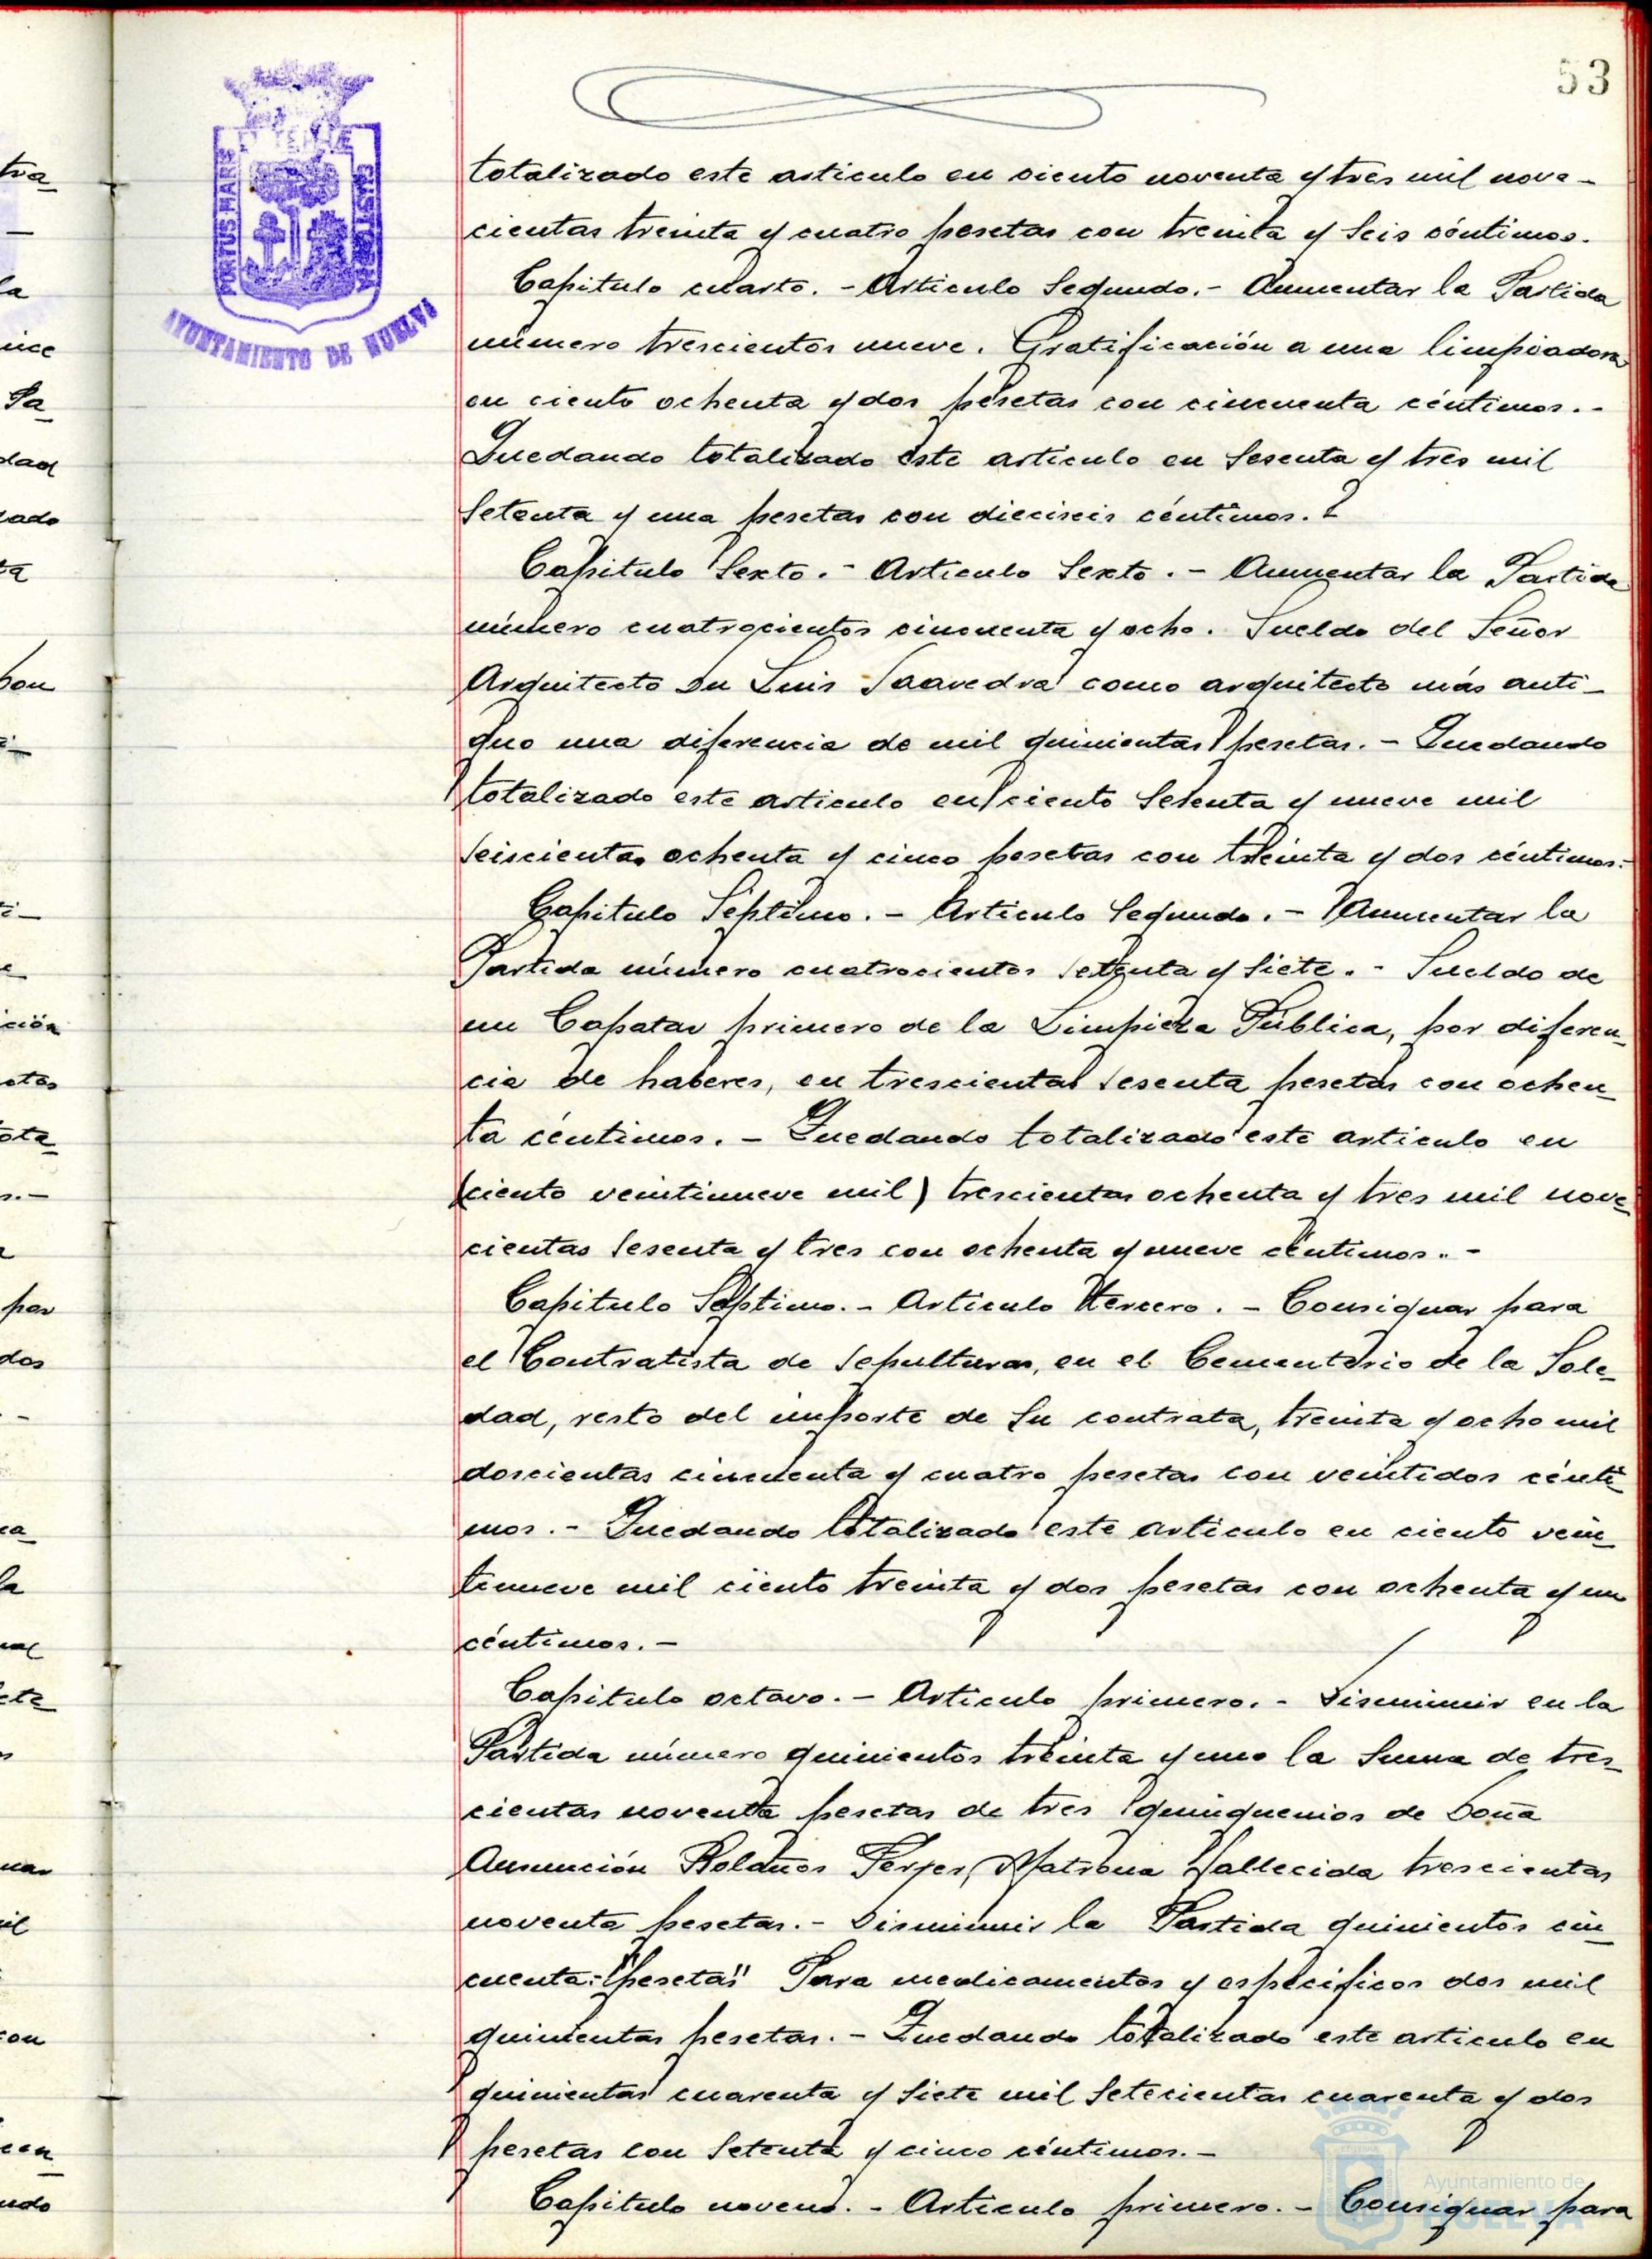 53
PORTUS MARIS ET TERRAE CUSTODIA
AYUNTAMIENTO DE HUELVA
totalizado este articulo en ciento noventa y tres mil nove-
cientas treinta y cuatro pesetas con treinta y seis céntimos.
Capitulo cuarto. - Articulo Segundo. - Aumentar la Partida
número trescientos nueve. Gratificación a una limpiadora
en ciento ochenta y dos pesetas con cincuenta céntimos. -
Quedando totalizado este articulo en sesenta y tres mil
setenta y una pesetas con dieciseis céntimos.
Capitulo Sexto. - Articulo Sexto. - Aumentar la Partida
número cuatrocientos cincuenta y ocho. Sueldo del Señor
Arquitecto Dn Luis Saavedra como arquitecto más anti-
guo una diferencia de mil quinientas pesetas. - Quedando
totalizado este articulo en ciento setenta y nueve mil
seiscientas ochenta y cinco pesetas con treinta y dos céntimos. -
Capitulo Séptimo. - Articulo Segundo. - Aumentar la
Partida número cuatrocientos setenta y siete. - Sueldo de
un Capataz primero de la Limpieza Pública, por diferen-
cia de haberes, en trescientas sesenta pesetas con ochen-
ta céntimos. - Quedando totalizado este articulo en
(ciento veintinueve mil) trescientas ochenta y tres mil nove-
cientas sesenta y tres con ochenta y nueve céntimos. -
Capitulo Séptimo. - Articulo tercero. - Consignar para
el Contratista de sepulturas, en el Cementerio de la Sole-
dad, resto del importe de su contrata, treinta y ocho mil
doscientas cincuenta y cuatro pesetas con veintidos cénti-
mos. - Quedando totalizado este articulo en ciento vein-
tinueve mil ciento treinta y dos pesetas con ochenta y un
céntimos. -
Capitulo octavo. - Articulo primero. - Disminuir en la
Partida número quinientos treinta y uno la suma de tres-
cientas noventa pesetas de tres quinquenios de Doña
Asunción Bolaños Ferrer, Matrona fallecida trescientas
noventa pesetas. - Disminuir la Partida quinientos cin-
cuenta: "pesetas" Para medicamentos y especificos dos mil
quinientas pesetas. - Quedando totalizado este articulo en
quinientas cuarenta y siete mil setecientas cuarenta y dos
pesetas con setenta y cinco céntimos. -
Capitulo noveno. - Articulo primero. - Consignar para
Ayuntamiento de
HUELVA